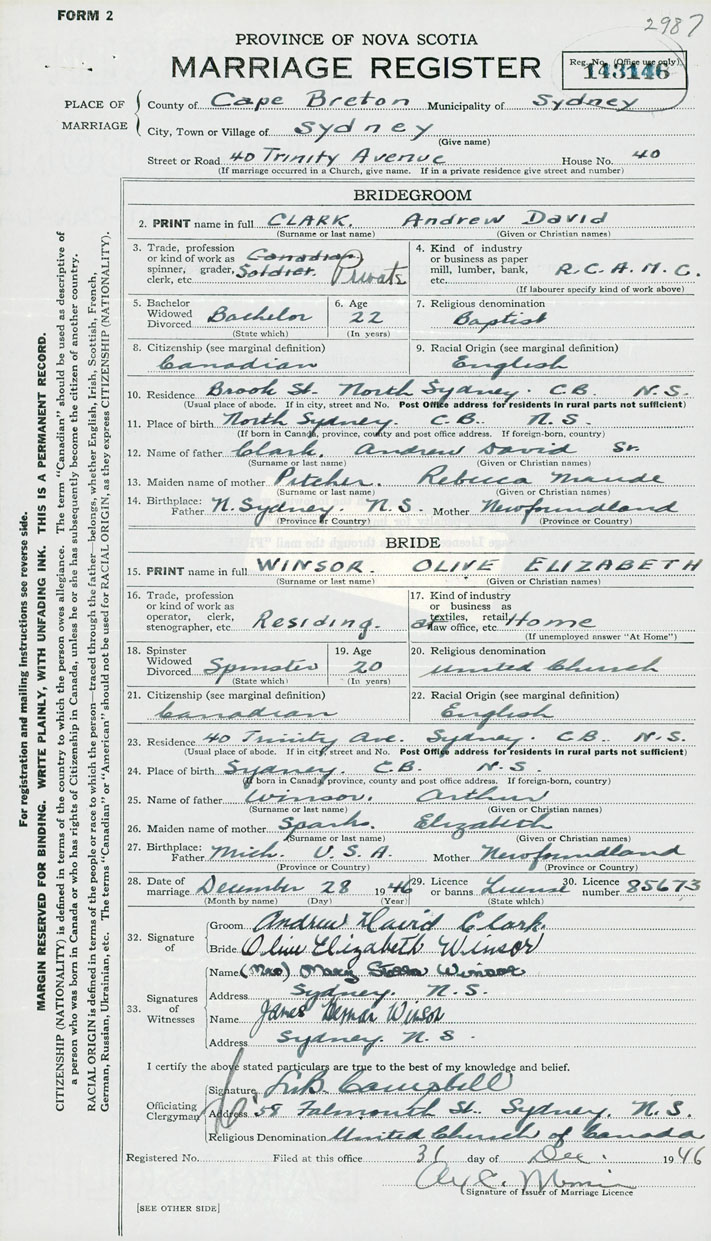 FORM 2
2987
PROVINCE OF NOVA SCOTIA
MARRIAGE REGISTER
Reg. No. (Office use only)
143146
PLACE OF MARRIAGE
County of Cape Breton Municipality of Sydney
City, Town or Village of Sydney
(Give name)
Street or Road 40 Trinity Avenue House No. 40
(If marriage occurred in a Church, give name. If in a private residence give street and number)
BRIDEGROOM
2. PRINT name in full CLARK. Andrew David
(Surname or last name) (Given or Christian names)
3. Trade, profession or kind of work as spinner, grader, clerk, etc. Canadian Soldier. Private
4. Kind of industry or business as paper mill, lumber, bank, etc. R.C.A.M.C.
(If labourer specify kind of work above)
5. Bachelor Widowed Divorced Bachelor
(State which)
6. Age 22
(In years)
7. Religious denomination
Baptist
8. Citizenship (see marginal definition)
Canadian
9. Racial Origin (see marginal definition)
English
10. Residence Brook St. North Sydney. C.B. N.S.
(Usual place of abode. If in city, street and No. Post Office address for residents in rural parts not sufficient)
11. Place of birth North Sydney. C.B. N.S.
(If born in Canada, province, county and post office address. If foreign-born, country)
12. Name of father Clark. Andrew David Sr.
(Surname or last name) (Given or Christian names)
13. Maiden name of mother Pitcher. Rebecca Maude
(Surname or last name) (Given or Christian names)
14. Birthplace: Father N. Sydney. N.S. Mother Newfoundland
(Province or Country) (Province or Country)
BRIDE
15. PRINT name in full WINSOR. OLIVE ELIZABETH
(Surname or last name) (Given or Christian names)
16. Trade, profession or kind of work as operator, clerk, stenographer, etc. Residing.
17. Kind of industry or business as textiles, retail, law office, etc. at Home
(If unemployed answer "At Home")
18. Spinster Widowed Divorced Spinster
(State which)
19. Age 20
(In years)
20. Religious denomination
United Church
21. Citizenship (see marginal definition)
Canadian
22. Racial Origin (see marginal definition)
English
23. Residence 40 Trinity Ave. Sydney. C.B. N.S.
(Usual place of abode. If in city, street and No. Post Office address for residents in rural parts not sufficient)
24. Place of birth Sydney. C.B. N.S.
(If born in Canada, province, county and post office address. If foreign-born, country)
25. Name of father Winsor. Arthur
(Surname or last name) (Given or Christian names)
26. Maiden name of mother Sparks. Elizabeth
(Surname or last name) (Given or Christian names)
27. Birthplace: Father Mich. U.S.A. Mother Newfoundland
(Province or Country) (Province or Country)
28. Date of marriage December 28 1946 29. Licence or banns License 30. Licence number 85673
(Month by name) (Day) (Year) (State which)
32. Signature of
Groom Andrew David Clark.
Bride Olive Elizabeth Winsor
33. Signatures of Witnesses
Name (Mrs) Mary Stella Winsor
Address Sydney. N.S.
Name James Winsor
Address Sydney. N.S.
I certify the above stated particulars are true to the best of my knowledge and belief.
Officiating Clergyman
Signature Campbell
Address 58 Falmouth St. Sydney. N.S.
Religious Denomination United Church of Canada
Registered No. Filed at this office 31 day of Dec. 1946
Signature of Issuer of Marriage Licence
[SEE OTHER SIDE]
For registration and mailing instructions see reverse side.
MARGIN RESERVED FOR BINDING. WRITE PLAINLY, WITH UNFADING INK. THIS IS A PERMANENT RECORD.
CITIZENSHIP (NATIONALITY) is defined in terms of the country to which the person owes allegiance. The term "Canadian" should be used as descriptive of
a person who was born in Canada or who has rights of Citizenship in Canada, unless he or she has subsequently become the citizen of another country.
RACIAL ORIGIN is defined in terms of the people or race to which the person—traced through the father—belongs, whether English, Irish, Scottish, French,
German, Russian, Ukrainian, etc. The terms "Canadian" or "American" should not be used for RACIAL ORIGIN, as they express CITIZENSHIP (NATIONALITY).